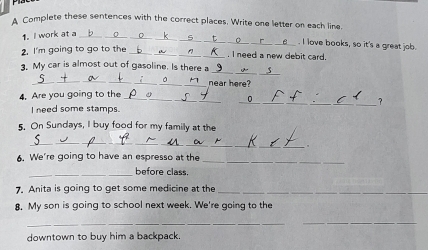 A Complete these sentences with the correct places. Write one letter on each line.
1. I work at a b o o k s t o r e . I love books, so it's a great job.
2. I'm going to go to the b a n k . I need a new debit card.
3. My car is almost out of gasoline. Is there a g a s
s t a t i o n near here?
4. Are you going to the p o s t o f f i c e ?
I need some stamps.
5. On Sundays, I buy food for my family at the
s u p e r m a r k e t .
6. We're going to have an espresso at the
before class.
7. Anita is going to get some medicine at the
8. My son is going to school next week. We're going to the
downtown to buy him a backpack.